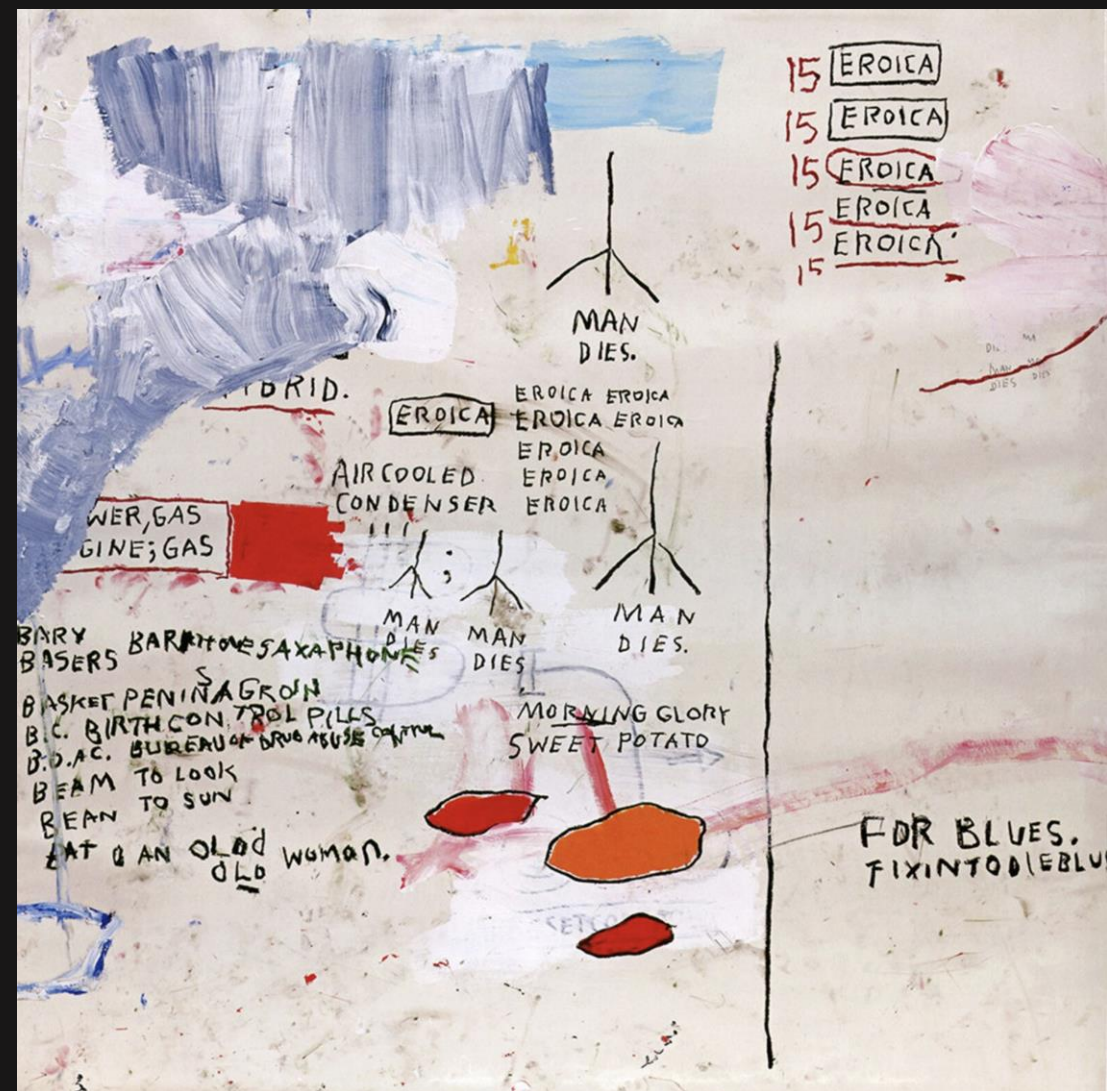 15 EROICA
15 EROICA
15 EROICA
15 EROICA
15 EROICA
MAN
DIES.
MAN
DIES
DIES
BRID.
EROICA
EROICA EROICA
EROICA EROICA
EROICA
EROICA
EROICA
AIRCOOLED
CONDENSER
WER, GAS
GINE; GAS
MAN
DIES
;
MAN
DIES
MAN
DIES.
BARY
BASERS
SAXAPHONE
S
BASKET PENINAGRON
B.C. BIRTHCONTROL PILLS
B.D.A.C. BUREAU OF DRUG ABUSE CONTROL
BEAM TO LOOK
BEAN TO SUN
AN OLOd woman.
OLD
MORNING GLORY
SWEET POTATO
FOR BLUES.
FIXINTODIEBLU